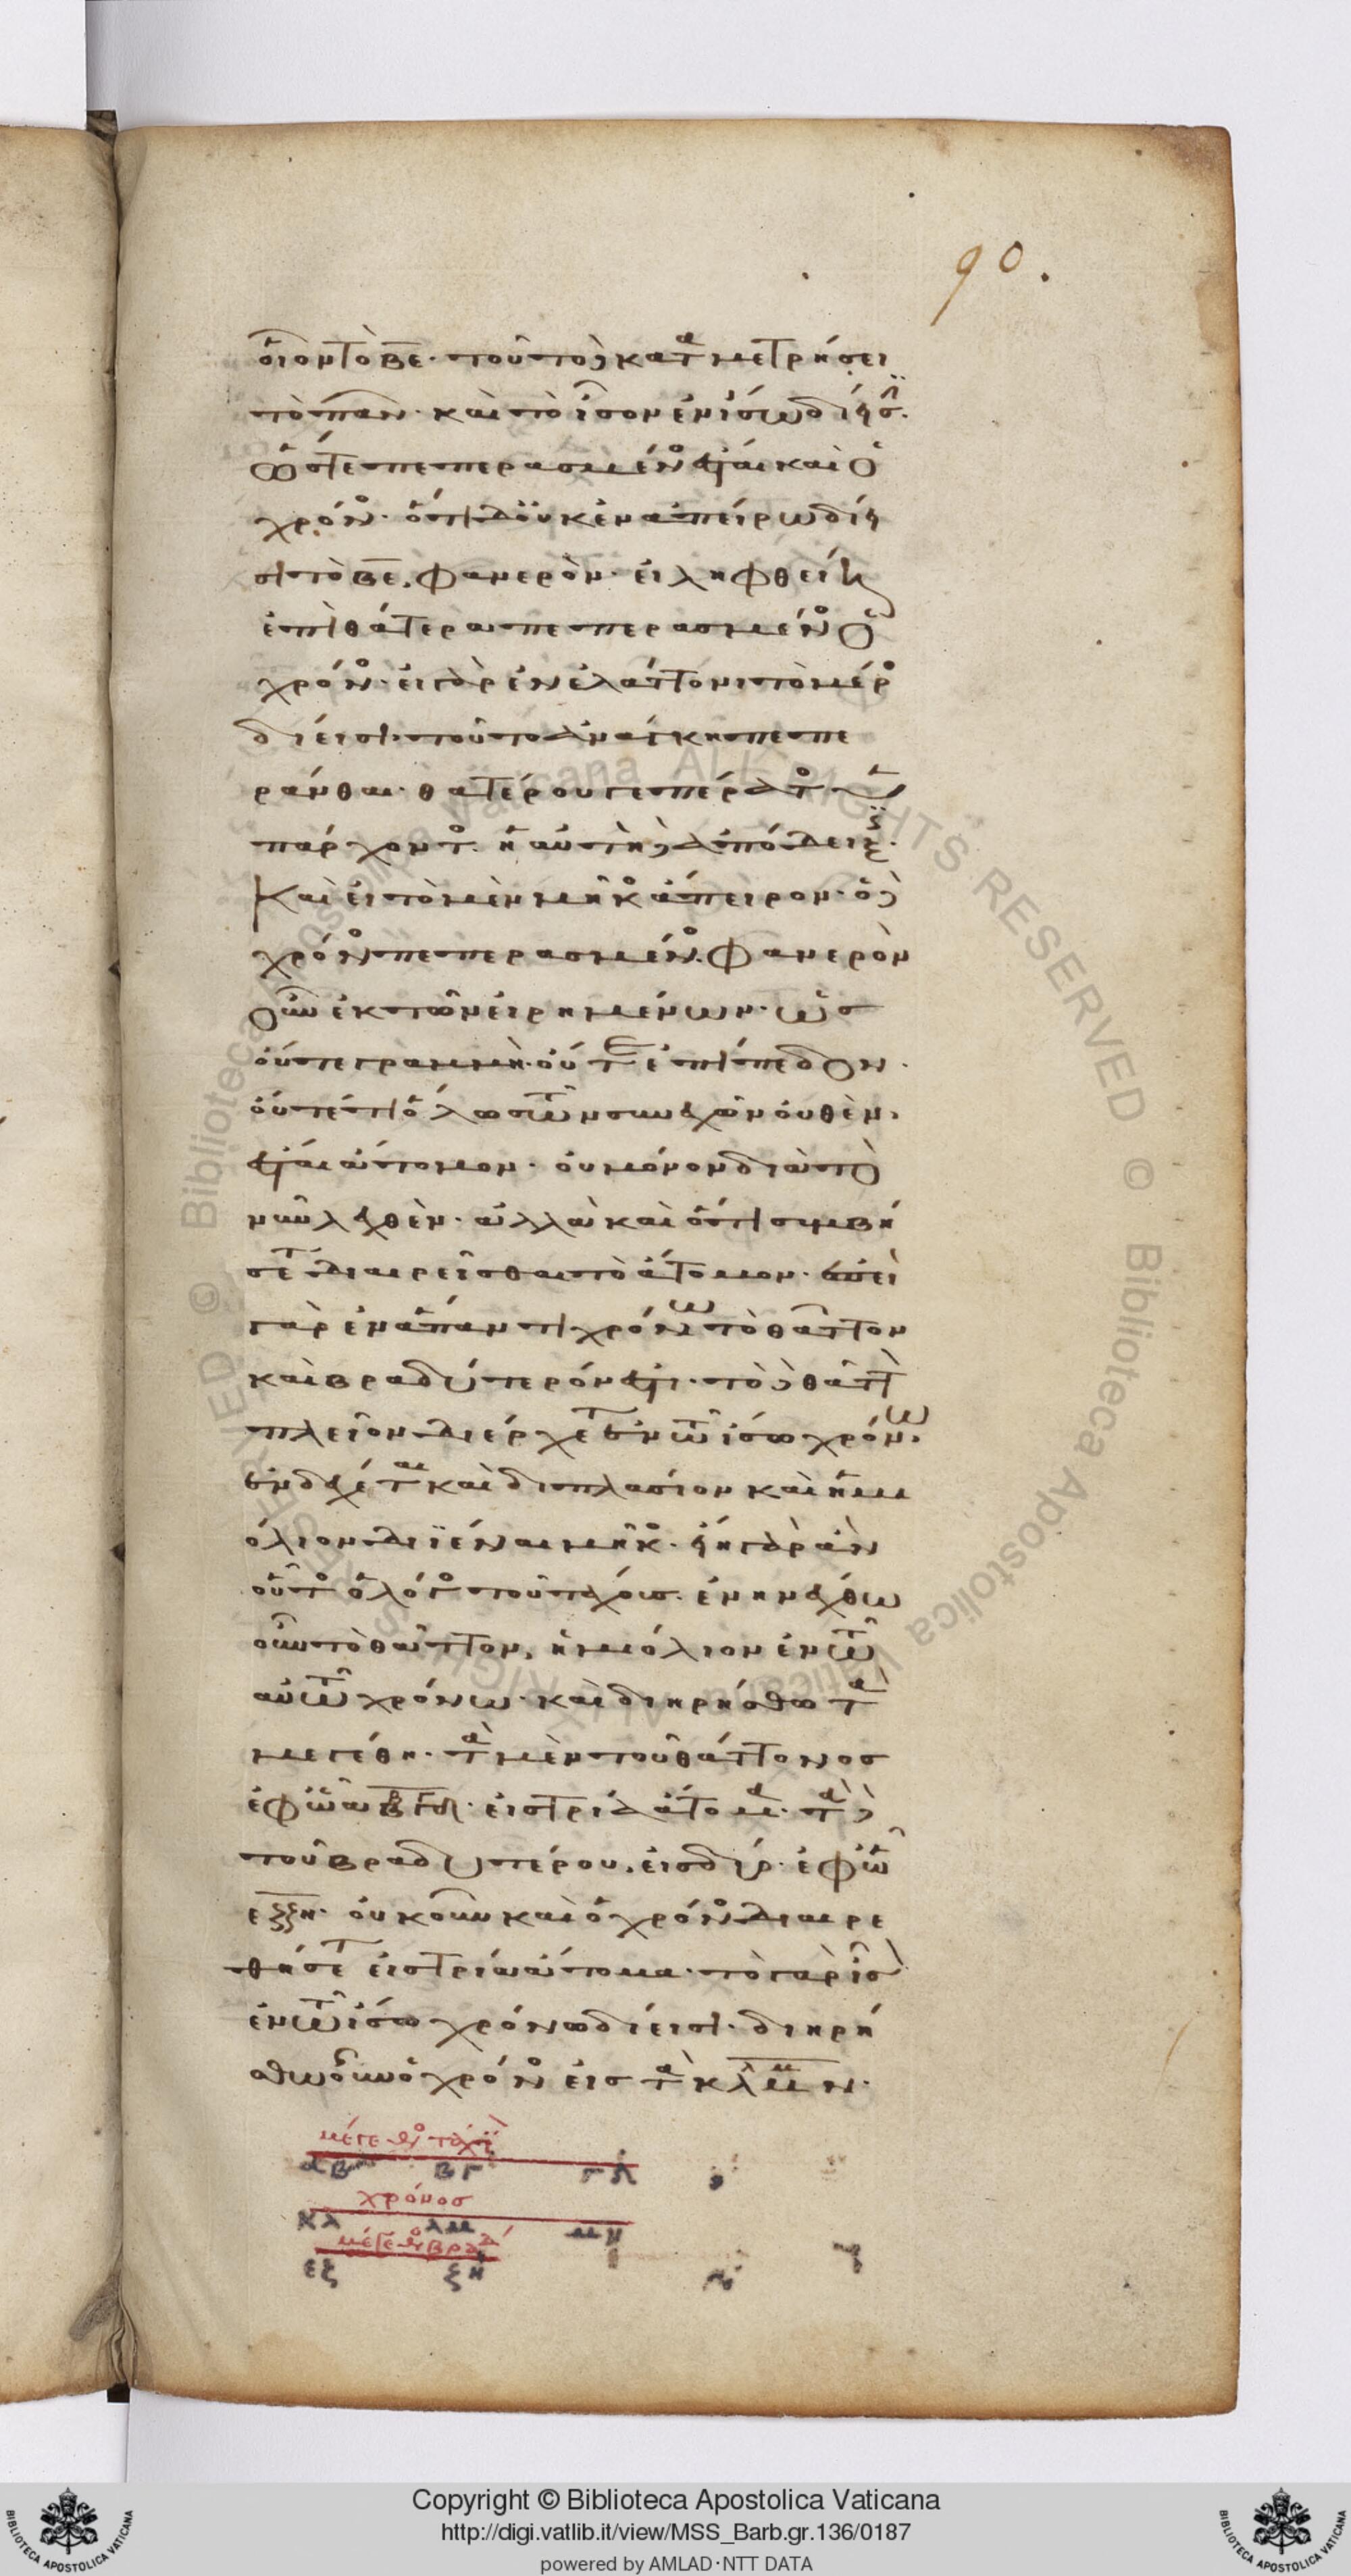 90.
οἷον τὸ βε· τοῦτο δὲ καταμετρήσει
τὸ πᾶν· καὶ τὸ ἴσον ἐν ἴσω δίεισιν.
ὥστε πεπερασμένος ἔσται καὶ ὁ
χρόνος· ὅτι δ' οὐκ ἐν ἀπείρω δίει
σι τὸ βε, φανερὸν· εἰ ληφθείη
ἐπὶ θάτερα πεπερασμένος ὁ
χρόνος· εἰ γὰρ ἐν ἐλάττονι τὸ μέρος
δίεισι· τοῦτο ἀνάγκη πεπε
ράνθαι· θατέρου γε πέρατος ὑ
πάρχοντος. ἡ αὐτὴ δὲ ἀπόδειξις.
Καὶ εἰ τὸ μὲν μῆκος ἄπειρον· ὁ δὲ
χρόνος πεπερασμένος. φανερὸν
οὖν ἐκ τῶν εἰρημένων· ὡς
οὔτε γραμμὴ· οὔτε ἐπίπεδον.
οὔτέ τι ὅλως τῶν συνεχῶν οὐθὲν.
ἔσται ἄτομον· οὐ μόνον διὰ τὸ
νῦν λεχθὲν· ἀλλὰ καὶ ὅτι συμβή
σεται διαιρεῖσθαι τὸ ἄτομον· ἐπεὶ
γὰρ ἐν ἅπαντι χρόνω τὸ θᾶττον
καὶ βραδύτερόν ἐστι· τὸ δὲ θᾶττον
πλεῖον διέρχεται ἐν τῶ ἴσω χρόνω.
ἐνδέχεται καὶ διπλάσιον καὶ ἡμι
όλιον διϊέναι μῆκος· εἴη γὰρ ἂν
οὗτος ὁ λόγος τοῦ τάχους. ἐνηνέχθω
οὖν τὸ θᾶττον, ἡμιόλιον ἐν τῶ
αὐτῶ χρόνω· καὶ διηρήσθω τὰ
μεγέθη· τὰ μὲν τοῦ θάττονος
ἐφ' ὧ αβγδ· εἰς τρία ἄτομα· τὰ δὲ
τοῦ βραδυτέρου, εἰς δύο· ἐφ' ὧ
εζη· οὐκοῦν καὶ ὁ χρόνος διαιρε
θήσεται εἰς τρία ἄτομα· τὸ γὰρ ἴσον
ἐν τῶ ἴσω χρόνω δίεισι· διηρή
σθω οὖν ὁ χρόνος εἰς τὰ κλμν·
μέγεθος ταχὺ
αβ βγ γδ
χρόνος
κλ λμ μν
μέγεθος βραδύ
εζ ζη
Copyright © Biblioteca Apostolica Vaticana
http://digi.vatlib.it/view/MSS_Barb.gr.136/0187
powered by AMLAD·NTT DATA